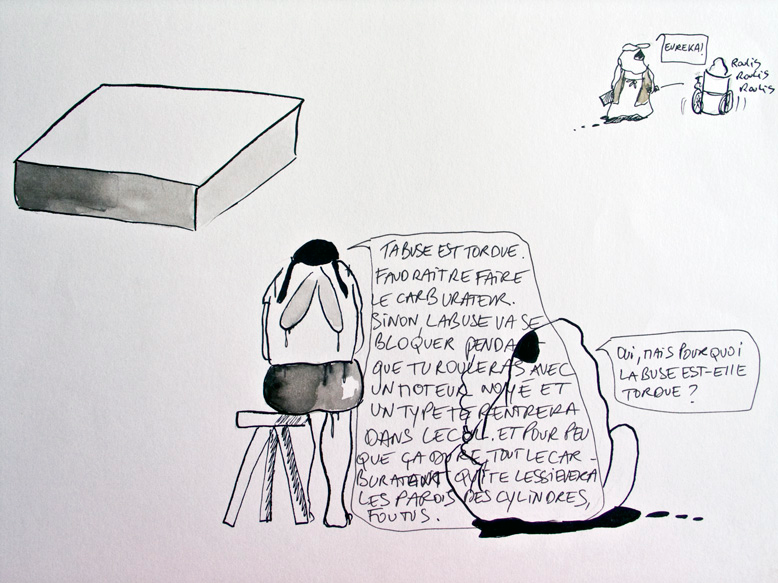 EUREKA!
Radis
Radis
Radis
TA BUSE EST TORDUE.
FAUDRAIT REFAIRE
LE CARBURATEUR.
SINON, LA BUSE VA SE
BLOQUER PENDANT
QUE TU ROULERAS AVEC
UN MOTEUR NOYÉ ET
UN TYPE TE RENTRERA
DANS LE CUL. ET POUR PEU
QUE ÇA DURE, TOUT LE CAR-
BURATEUR QUI TE LESSIVERA
LES PAROIS DES CYLINDRES,
FOUTUS.
OUI, MAIS POURQUOI
LA BUSE EST-ELLE
TORDUE ?